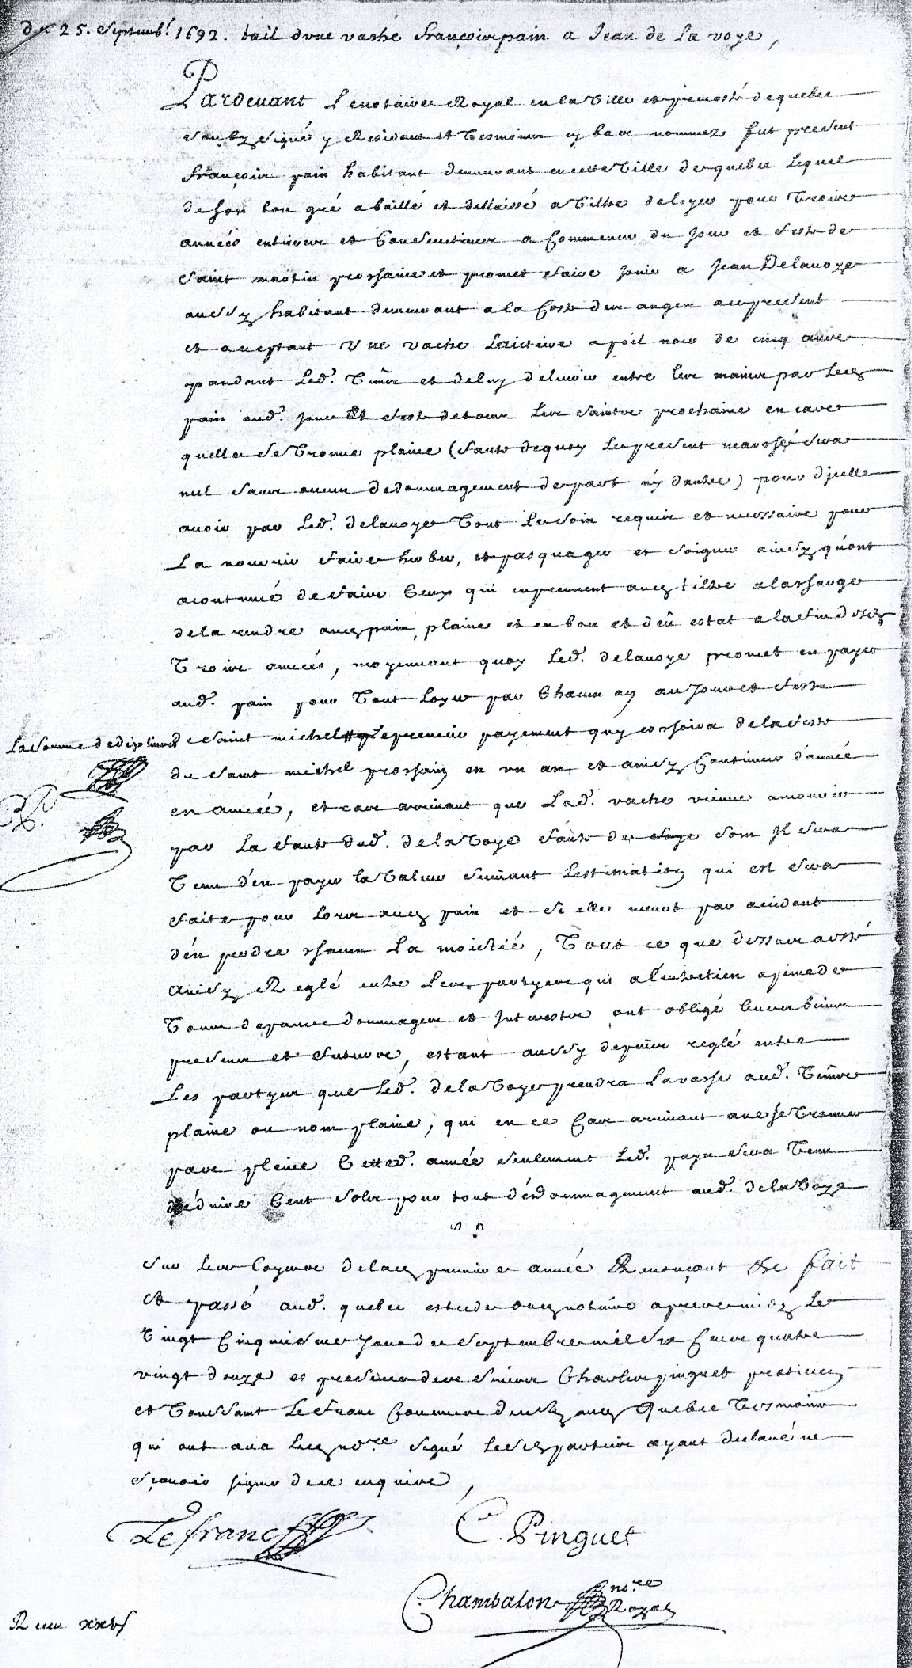 du 25. Septemb.t 1692. bail dvne vache françois pain a Jean de la voye,
Pardeuant Le notaire Royal en la Ville et preuosté de quebec
soubz signé y Residant et Tesmoins cy bas nommez fut present
françois pain habitant demeurant en cette Ville de quebec Lequel
de son bon gré a baillé et dellaissé a Tiltre de loyer pour Trois
années entieres et Consecutiues a Commencer du Jour et feste de
Saint martin prochain et promet faire Jouir a Jean Delavoye
aussy habitant demeurant a la Coste des anges a ce present
et acceptant Vne vache Laictiere a poil noir de cinq ans
pandant Led. Temps et deluy deliurer entre les mains par Led
pain aud. Jour et feste de tous Les Saints prochaine en cas
quelle se Trouue plaine (faute dequoy Le present marché sera
nul sans aucun dedommagement de part ny dautre) pour d'jcelle
auoir par Led. delauoye Tout Le soin requis et necessaire pour
La nourrir faire herber, et pasquager et soigner ainsy quont
acoutumé de faire Ceux qui en prennent a ce tiltre a la charge
de la rendre aud pain plaine et en bon et deü estat a la fin desd
Trois années, moyennant quoy Led. delauoye promet en payer
aud. pain pour Tout Loyer par Chacun an au Jour et feste
La somme de dix liures
de Saint michel premier payement qui eschera de la feste
de Saint michel prochain en vn an et ainsy Continuer d'année
en année, et cas arriuant que Lad. vache vienne a mourir
par La faute dud. de la Voye faute de soin Il sera
Tenu d'en payer la Valeur suiuant Lestimation qui en sera
faite pour Lors aud pain et si elle meurt par accident
d'en perdre chacun La moictié, Tout ce que dessus a esté
ainsy Reglé entre Lesd partyes qui a l'entretien a peine de
Tous depans dommages et Interests ont obligé leurs biens
presens et futurs, estant aussy de plus reglé entre
Les partyes que Led. de la Voye prendra La vache aud. Temps
plaine ou non plaine, qui en ce Cas arriuant que se Trouuer
pas pleine Cette d. année seulement Led. pain sera Tenu
déduire Cent sols pour tout dédommagement aud. de la Voye
sur les Loyers de lad premiere année Renonçant &c fait
et passé aud. quebec estude dud notaire apres midy Le
Vingt Cinquiesme Jour de Septembre mil six Cens quatre
vingt douze es presences des sieurs Charles pinguet praticien
et Toussant Le franc Commere dud Quebec Tesmoins
qui ont auec Led nore signé Lesd partyes ayant declaré ne
sçauoir signer de ce enquis,
Le franc
C. Pinguet
Chambalon nore Royal